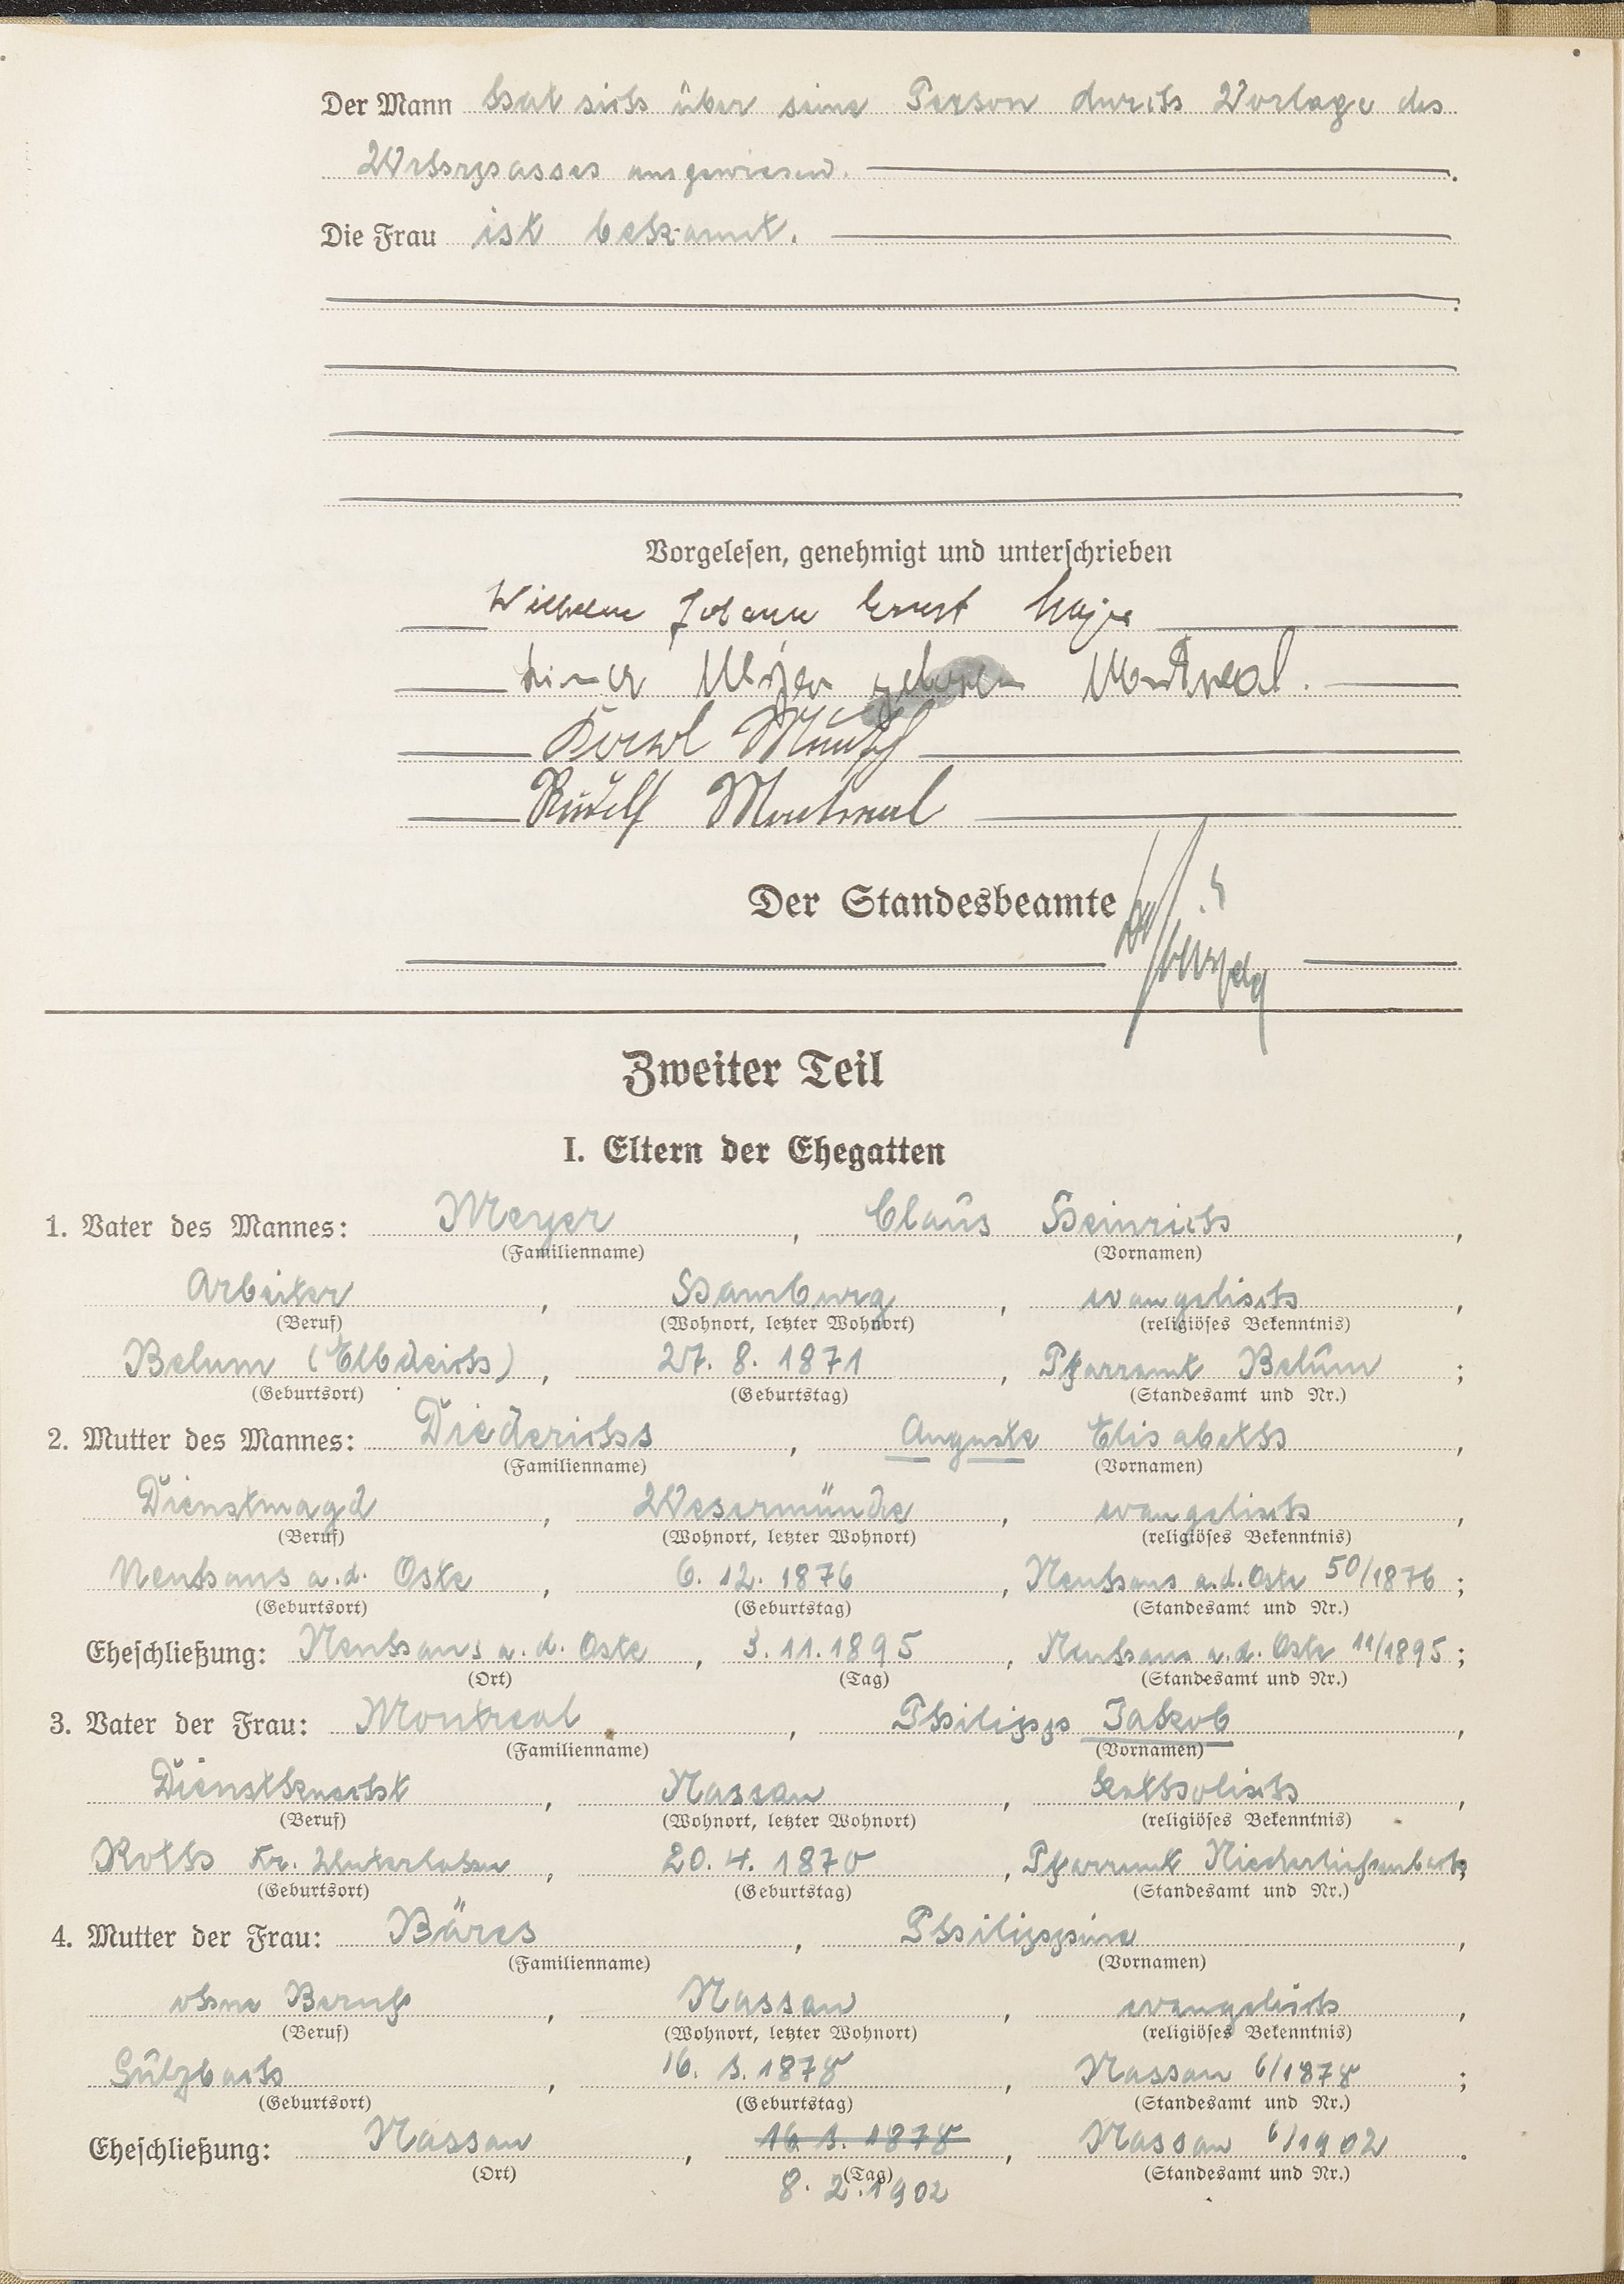 Der Mann hat sich über seine Person durch Vorlage des
Wehrpasses ausgewiesen.
Die Frau ist bekannt.
Vorgelesen, genehmigt und unterschrieben
Wilhelm Johann Ernst Meyer
Meyer geboren Montreal.
Rudolf Montreal
Der Standesbeamte
Zweiter Teil
I. Eltern der Ehegatten
1. Vater des Mannes: Meyer, Claus Heinrich,
(Familienname) (Vornamen)
Arbeiter, Hamburg, evangelisch,
(Beruf) (Wohnort, letzter Wohnort) (religiöses Bekenntnis)
Belum (Elbdeich), 27. 8. 1871, Pfarramt Belum;
(Geburtsort) (Geburtstag) (Standesamt und Nr.)
2. Mutter des Mannes: Diederichs, Auguste Elisabeth,
(Familienname) (Vornamen)
Dienstmagd, Wesermünde, evangelisch,
(Beruf) (Wohnort, letzter Wohnort) (religiöses Bekenntnis)
Neuhaus a.d. Oste, 6. 12. 1876, Neuhaus a.d. Oste 50/1876;
(Geburtsort) (Geburtstag) (Standesamt und Nr.)
Eheschließung: Neuhaus a.d. Oste, 3. 11. 1895, Neuhaus a.d. Oste 11/1895;
(Ort) (Tag) (Standesamt und Nr.)
3. Vater der Frau: Montreal, Philipp Jakob,
(Familienname) (Vornamen)
Dienstknecht, Nassau, katholisch,
(Beruf) (Wohnort, letzter Wohnort) (religiöses Bekenntnis)
Roth Kr. Unterlahn, 20. 4. 1870, Pfarramt;
(Geburtsort) (Geburtstag) (Standesamt und Nr.)
4. Mutter der Frau: Bäres, Philippine,
(Familienname) (Vornamen)
ohne Beruf, Nassau, evangelisch,
(Beruf) (Wohnort, letzter Wohnort) (religiöses Bekenntnis)
Sulzbach, 16. 3. 1878, Nassau 6/1878;
(Geburtsort) (Geburtstag) (Standesamt und Nr.)
Eheschließung: Nassau, 16. 3. 1878, Nassau 6/1902.
(Ort) (Tag) (Standesamt und Nr.)
8. 2. 1902